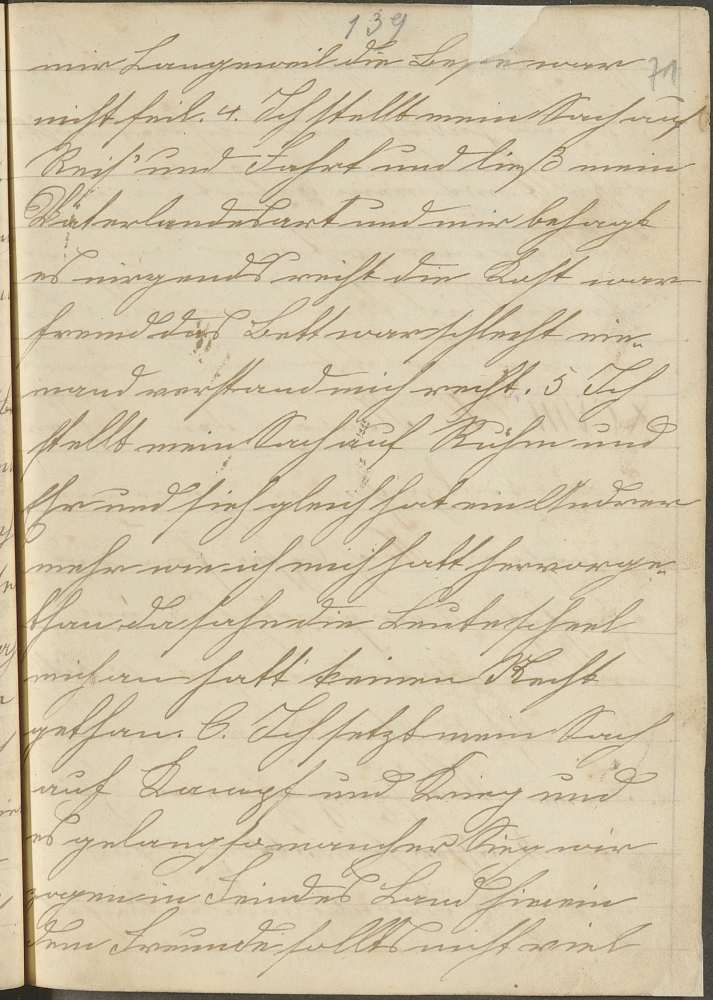 139
mir Langeweil die Beste war
71
nicht feil. 4. Ich stellt mein Sach auf
Reis' und Fahrt und ließ mein
Väterlandesart und mir behagt
es nirgends recht die Kost war
fremd das Bett war schlecht nie-
mand verstand mich recht. 5 Ich
stellt mein Sach auf Ruhm und
Ehr und sieh gleich hat ein Andrer
mehr wie ich mich hatt hervorge-
than da sahn die Leute scheel
mich an hatt keinen Recht
gethan. 6. Ich setzt mein Sach
auf Kampf und Krieg und
es gelang so mancher Sieg wir
zogen in Feindes Land hinein
dem Freunde sollts nicht viel